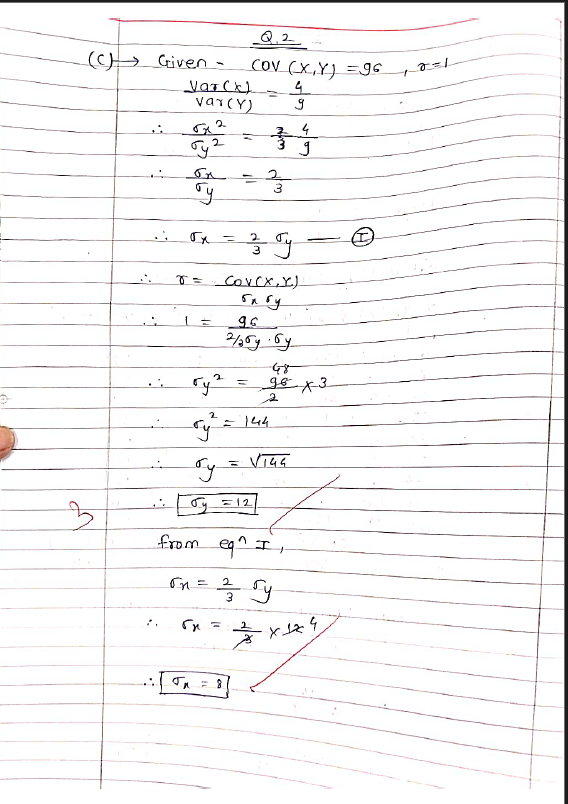 Q.2
(C) → Given - COV (X,Y) = 96 , r=1
Var(X) / Var(Y) = 4/9
∴ σx² / σy² = 4/9
∴ σx / σy = 2/3
∴ σx = 2/3 σy — (I)
∴ r = Cov(X,Y) / σx σy
∴ 1 = 96 / 2/3σy · σy
∴ σy² = 48 96/2 × 3
∴ σy² = 144
∴ σy = √144
3 ∴ σy = 12
from eqⁿ I,
σx = 2/3 σy
∴ σx = 2/3 × 12 4
∴ σx = 8